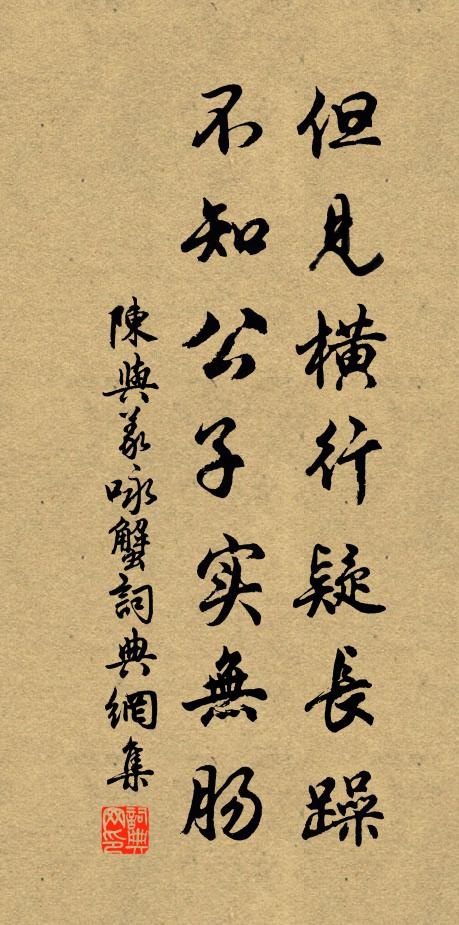 但見橫行疑長躁
不知公子实無肠
陳與義咏蟹詞典網集
詞典網印